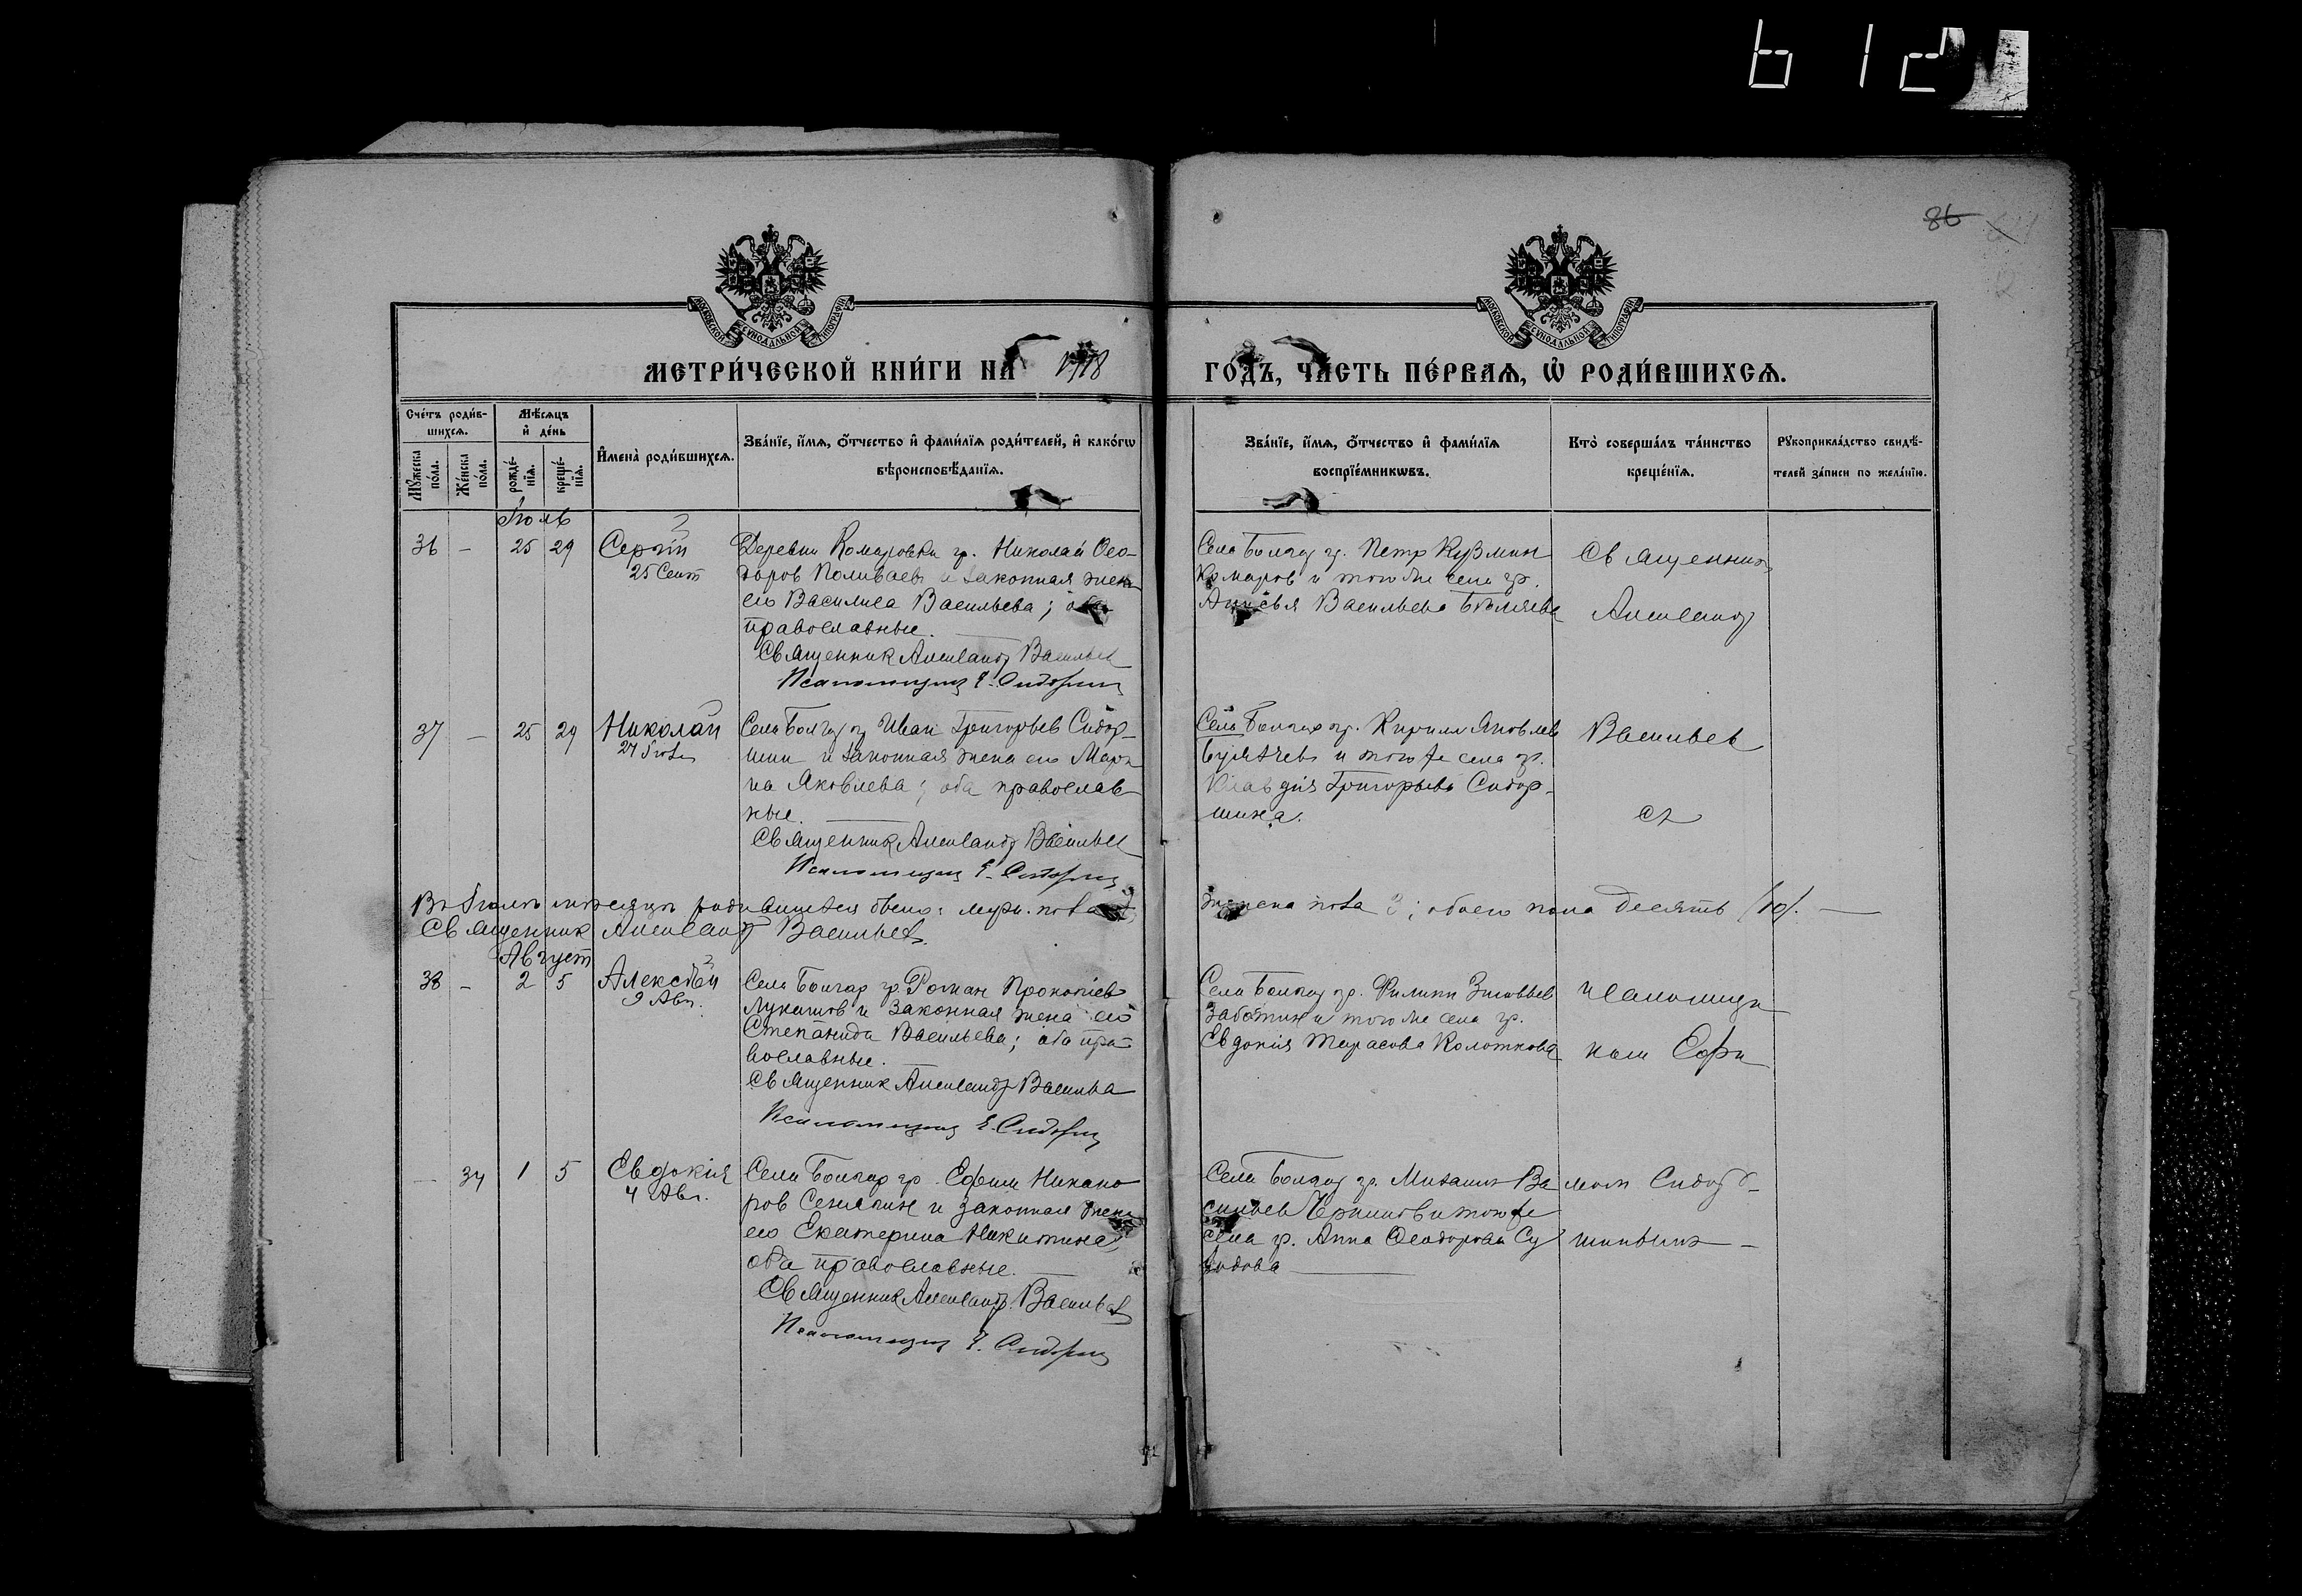 612
86
МОСКОВСКОЙ СѴНОДАЛЬНОЙ ТИПОГРАФІИ
МОСКОВСКОЙ СѴНОДАЛЬНОЙ ТИПОГРАФІИ
МЕТРИ́ЧЕСКОЙ КНИ́ГИ НА 1918 ГО́ДЪ, ЧА́СТЬ ПЕ́РВАѦ, Ѡ҆ РОДИ́ВШИХСѦ.
Сче́тъ роди́в-
шихсѧ.
Мꙋ́жеска по́ла.
Же́нска по́ла.
Мѣ́сѧцъ
и҆ де́нь
рожде́-нїѧ.
креще́-нїѧ.
И҆мена̀ роди́вшихсѧ.
Зва́нїе, и҆́мѧ, ѻ҆́тчество и҆ фами́лїѧ роди́телей, и҆ како́гѡ
вѣроисповѣ́данїѧ.
Зва́нїе, и҆́мѧ, ѻ҆́тчество и҆ фами́лїѧ
воспрїе́мникѡвъ.
Кто̀ соверша́лъ та́инство
креще́нїѧ.
Рꙋкоприкла́дство свидѣ́-
телей за́писи по жела́нїю.
Іюль
36 — 25 29 Сергій
25 Сент
Деревни Комаровки гр. Николай Ѳео-
доров Поливаев и законная жена
его Василиса Васильева; оба
православные.
Священник Александр Васильев
Псаломщик Е. Сидорин
Села Болгар гр. Петр Кузмин
Комаров и того же села гр.
Васильева
Священник
Александр
37 — 25 29 Николай
27 Іюль
Села Болгар гр Иван Григорьев Сидор-
шин и законная жена его Мари
на Яковлева; оба православ-
ные.
Священник Александр Васильев
Псаломщик Е. Сидорин
Села Болгар гр. Кирилл Яковлев
и того же села гр.
Клавдія Григорьева Сидор-
шина.
Васильев
съ
В Іюле месяце родившихся всего: муж. пола
женска пола 3; обоего пола десять /10/. —
Священник Александр Васильев.
Август
38 — 2 5 Алексѣй
9 Авг.
Села Болгар гр. Роман Прокопіев
Лукашов и законная жена его
Степанида Васильева; оба пра-
вославные.
Священник Александр Васильев
Псаломщик Е. Сидорин
Села Болгар гр. Филипп Зиновьев
Заботин и того же села гр.
Евдокія Тарасова Колоткова
псаломщи
ком Ефи
— 34 1 5 Евдокія
4 Авг.
Села Болгар гр. Ефим Никано
ров Сеняпин и законная жена
его Екатерина Никитина;
оба православные. —
Священник Александр Васильев
Псаломщик Е. Сидорин
Села Болгар гр. Михаил Ва
сильев и того же
села гр. Анна Ѳеодорова Су
мом Сидор-
шиным —